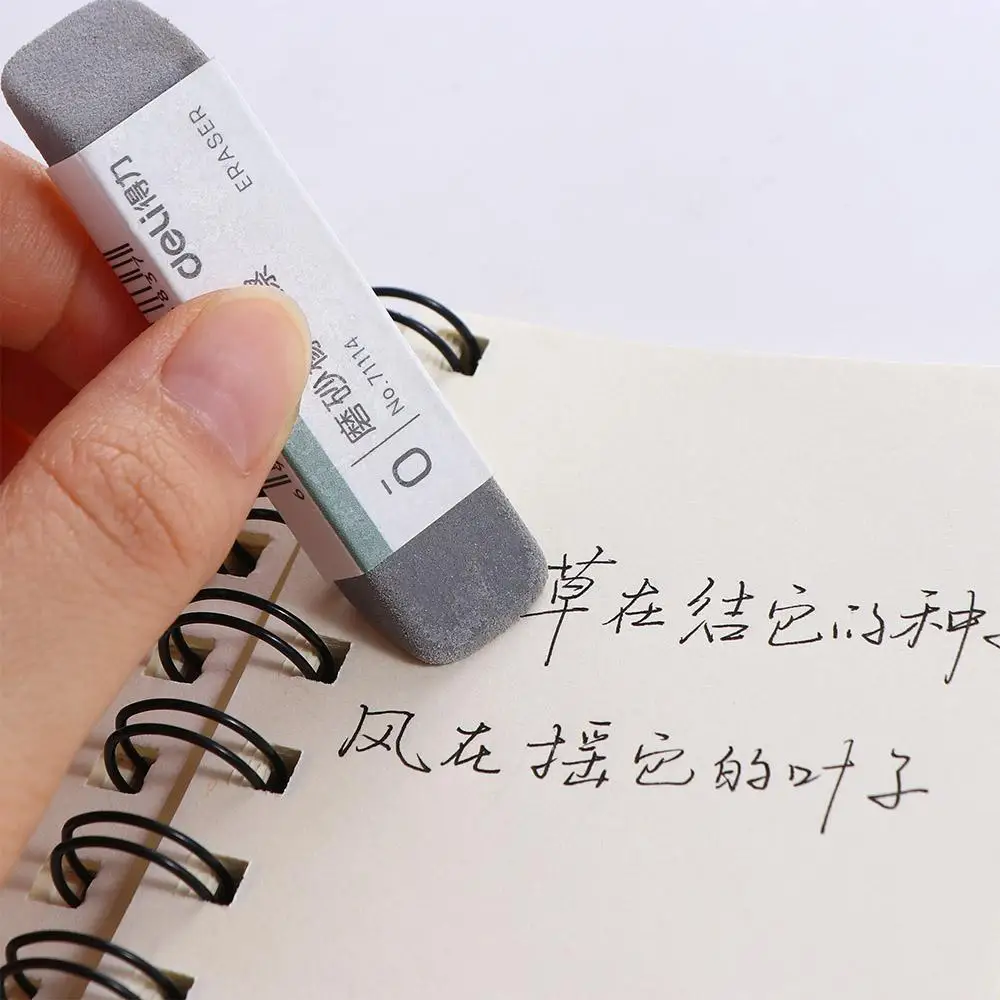 ERASER
deli得力
磨砂橡
No.71114
草在结它的种
风在摇它的叶子